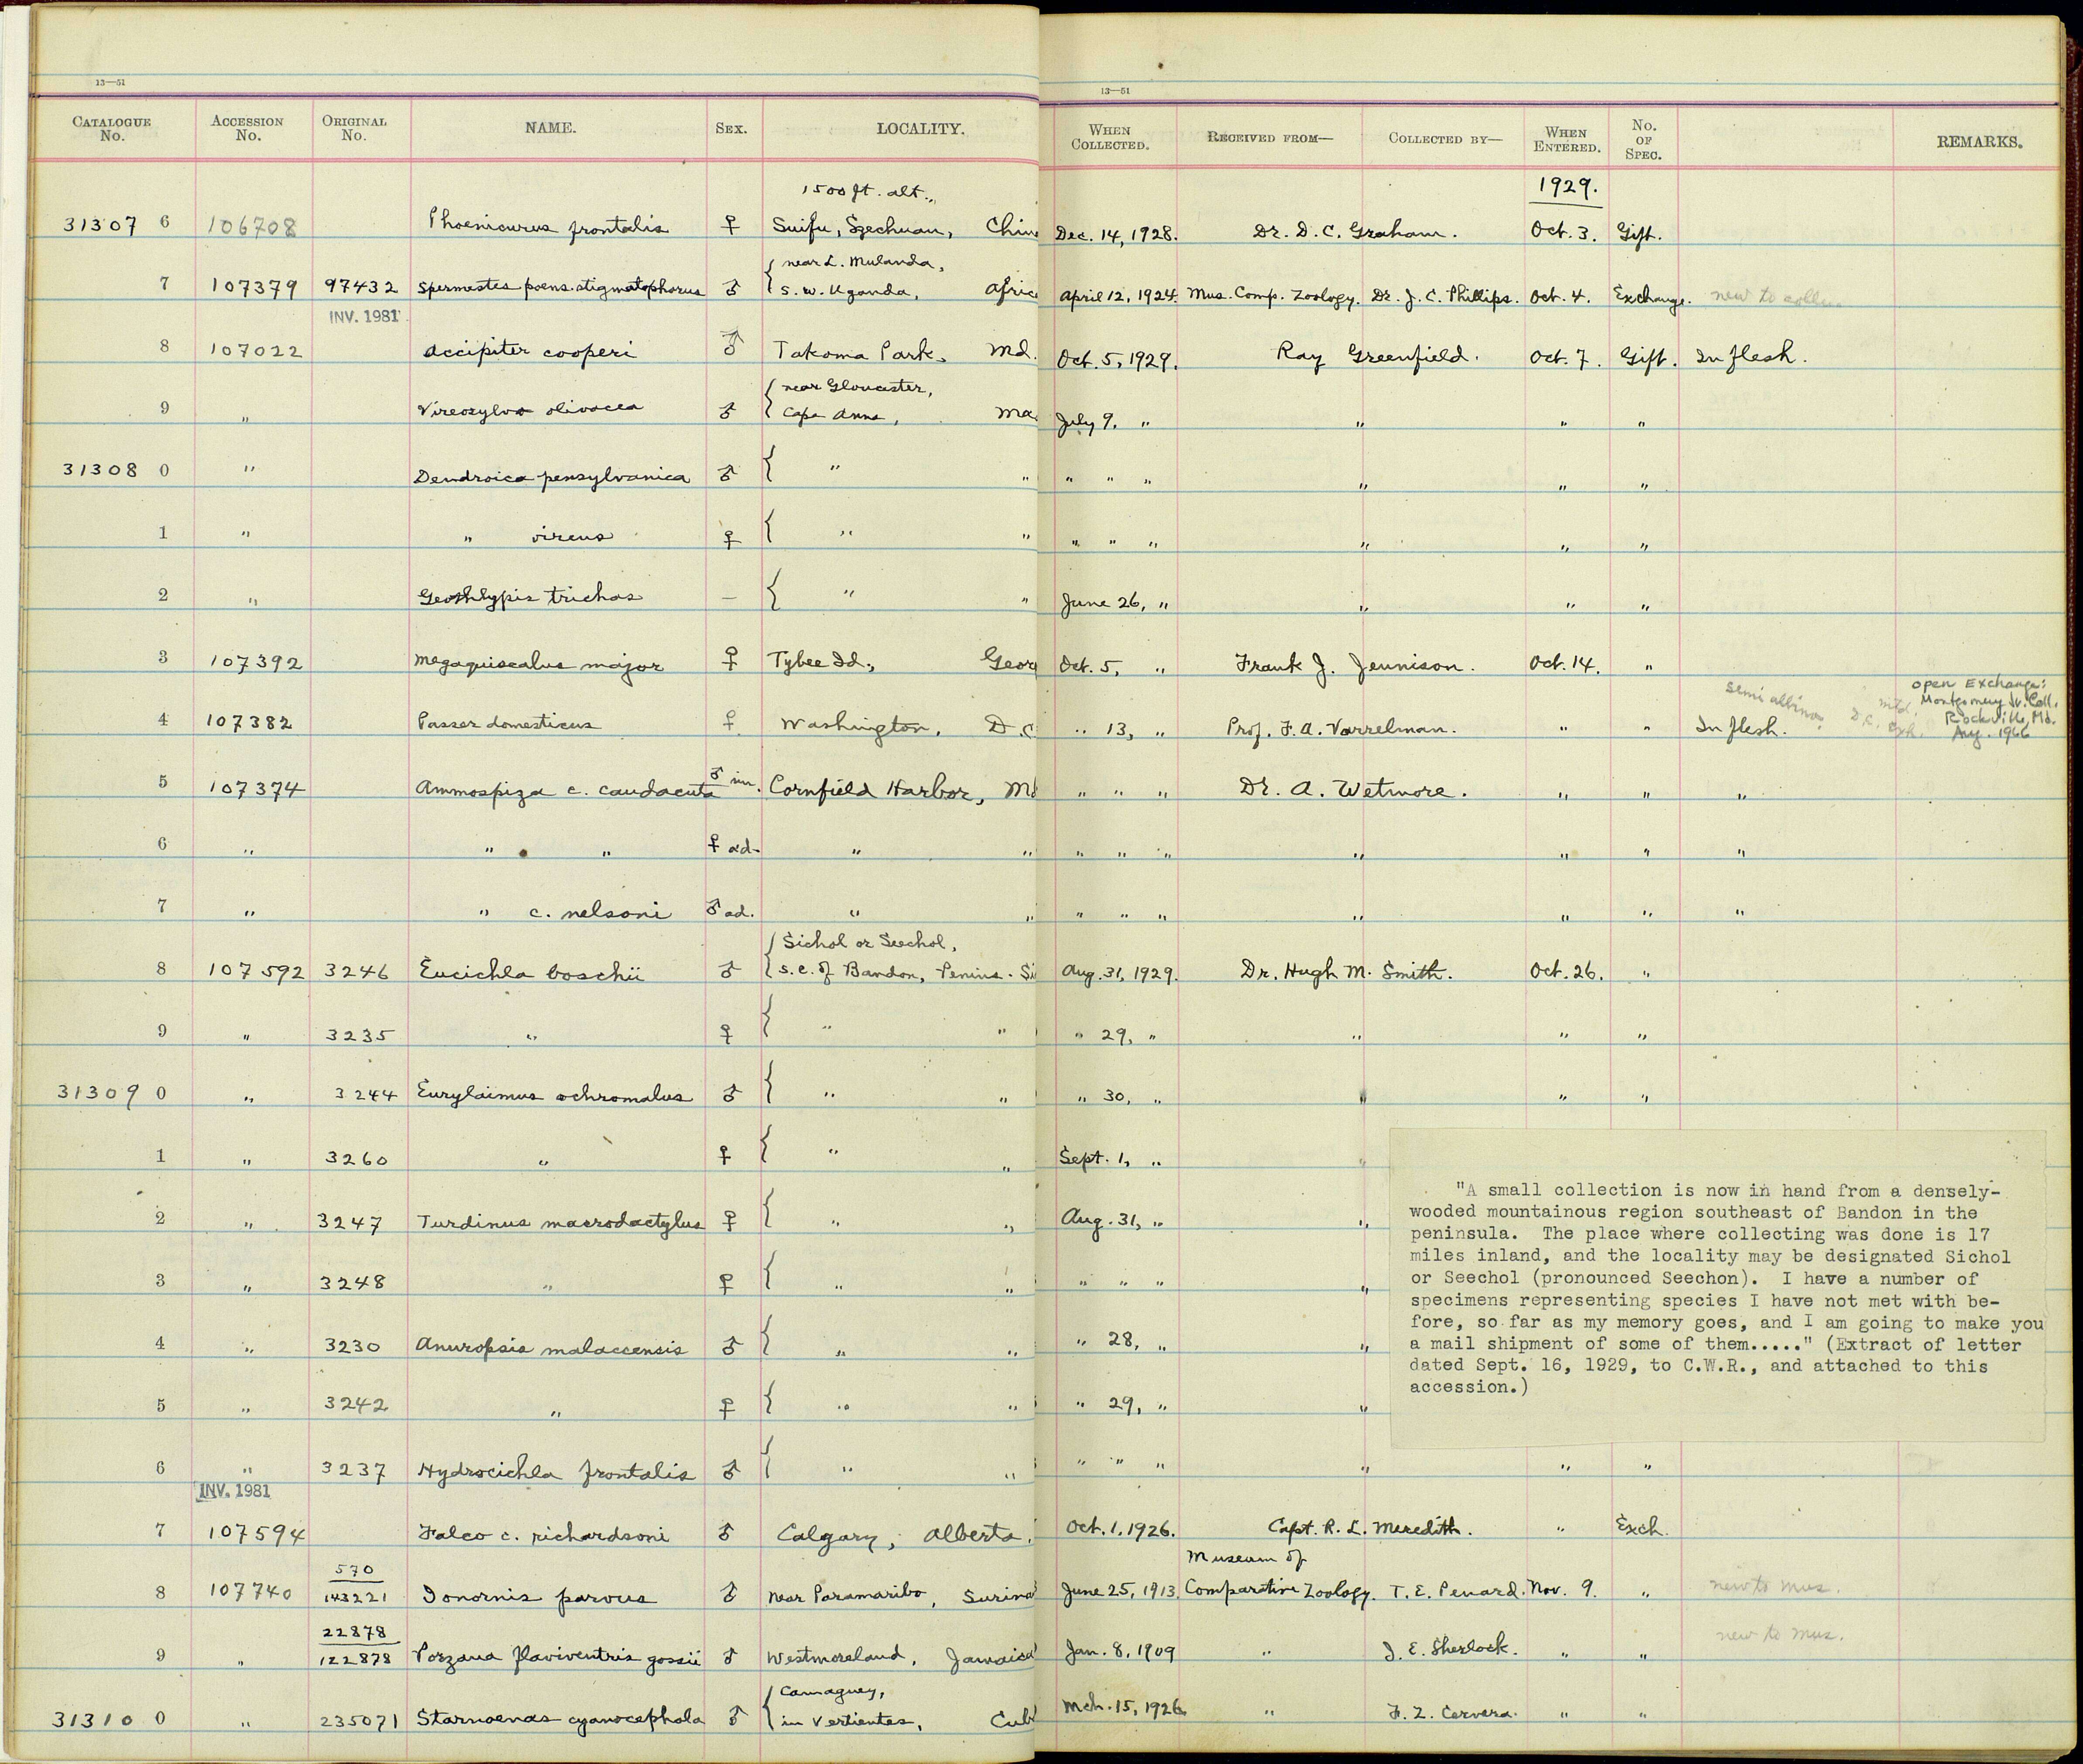 13—51
13—51
CATALOGUE No. ACCESSION No. ORIGINAL No. NAME. SEX. LOCALITY. WHEN COLLECTED. RECEIVED FROM— COLLECTED BY— WHEN ENTERED. No. OF SPEC. REMARKS.
1500 ft. alt., 1929.
31307 6 106708 Phoenicurus frontalis ♀ Suifu, Szechuan, Chin Dec. 14, 1928. Dr. D. C. Graham. Oct. 3. Gift.
near L. Mulanda,
7 107379 97432 Spermestes poens. stigmatophorus ♂ S. W. Uganda, Afric April 12, 1924. Mus. Comp. Zoology. Dr. J. C. Phillips. Oct. 4. Exchange. new to colln.
INV. 1981
8 107022 Accipiter cooperi ♂ Takoma Park, Md. Oct. 5, 1929. Ray Greenfield. Oct. 7. Gift. In flesh.
near Gloucester,
9 " Vireosylva olivacea ♂ Cape Anne, Ma July 9, " " " "
31308 0 " Dendroica pensylvanica ♂ { " " " " " " " "
1 " " virens ♀ { " " " " " " " "
2 " Geothlypis trichas — { " " June 26, " " " "
3 107392 Megaquiscalus major ♀ Tybee Id., Geor Oct. 5, " Frank J. Jennison. Oct. 14. "
semi albino open Exchange:
Montgomery Jr. Coll.
4 107382 Passer domesticus ♀ Washington, D.C " 13, " Prof. F. A. Varrelman. " " In flesh. Rockville, Md.
Aug. 1966
5 107374 Ammospiza c. caudacuta ♂ im. Cornfield Harbor, Md " " " Dr. A. Wetmore. " " "
6 " " " ♀ ad. " " " " " " " " "
7 " " c. nelsoni ♂ ad. " " " " " " " " "
Sichol or Seechol,
8 107592 3246 Eucichla boschii ♂ S.E. of Bandon, Penins. Si Aug. 31, 1929. Dr. Hugh M. Smith. Oct. 26. "
9 " 3235 " ♀ { " " " 29, " " " "
31309 0 " 3244 Eurylaimus ochromalus ♂ { " " " 30, " " " "
1 " 3260 " ♀ { " " Sept. 1, " "
2 " 3247 Turdinus macrodactylus ♀ { " " Aug. 31, " "
3 " 3248 " ♀ { " " " " " "
4 " 3230 Anuropsis malaccensis ♂ { " " " 28, " "
5 " 3242 " ♀ { " " " 29, " "
6 " 3237 Hydrocichla frontalis ♂ { " " " " " " " "
INV. 1981
7 107594 Falco c. richardsoni ♂ Calgary, Alberta. Oct. 1, 1926. Capt. R. L. Meredith. " Exch.
570 Museum of
8 107740 143221 Ionornis parvus ♂ Near Paramaribo, Surina June 25, 1913. Comparative Zoology. T. E. Penard. Nov. 9. " new to mus.
22878
9 " 122878 Porzana flaviventris gossii ♂ Westmoreland, Jamaica Jan. 8, 1909 " J. E. Sherlock. " " new to mus.
Camaguey,
31310 0 " 235071 Starnoenas cyanocephala ♂ in Vertientes, Cub Mch. 15, 1926. " F. Z. Cervera. " "
"A small collection is now in hand from a densely-
wooded mountainous region southeast of Bandon in the
peninsula. The place where collecting was done is 17
miles inland, and the locality may be designated Sichol
or Seechol (pronounced Seechon). I have a number of
specimens representing species I have not met with be-
fore, so far as my memory goes, and I am going to make you
a mail shipment of some of them....." (Extract of letter
dated Sept. 16, 1929, to C.W.R., and attached to this
accession.)